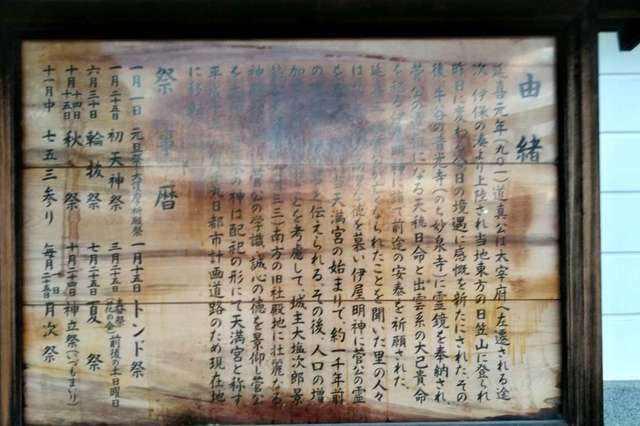 由緒
延喜元年(九〇一)道真公は太宰府へ左遷される途
次、伊保の湊より上陸され当地東方の日笠山に登られ
昨日に変わる今日の境遇に感慨を新たにされた。その
後、牛谷の音光寺(のち妙泉寺)に霊鏡を奉納され
菅公の遠祖になる天穂日命と出雲系の大己貴命
を祀る伊屋明神に詣で前途の安泰を祈願された。
延喜 亡くなられたことを聞いた里の人々
は 徳を慕い伊屋明神に菅公の霊
を 天満宮の始まりで、約一千年前
の と伝えられる。その後、人口の増
加 とを考慮して、城主大塩次郎景
三三)南方の旧社殿地に壮麗なる
神 菅公の学識、誠心の徳を景仰し菅公
を の神は配祀の形にて天満宮と称す
平成 九日都市計画道路のため現在地
に移転
祭事暦
一月一日 元旦祭 祈願祭 一月十五日 トンド祭
一月二十五日 初天神祭 三月二十五日 春祭(花の会)前後の土日曜日
六月三十日 輪抜祭 七月二十五日 夏祭
十月十四日十五日 秋祭 十月二十四日 神立祭(つづもまいり)
十一月中 七五三参り 毎月二十五日 月次祭